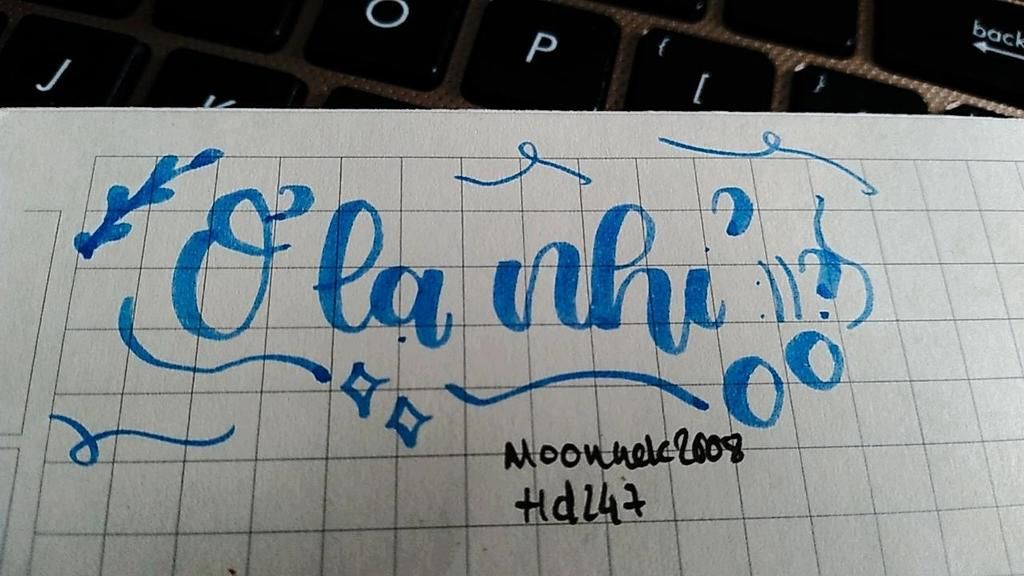 O P [ back
J K
Ở lạ nhỉ !!?
Moonnek2008
Hd247